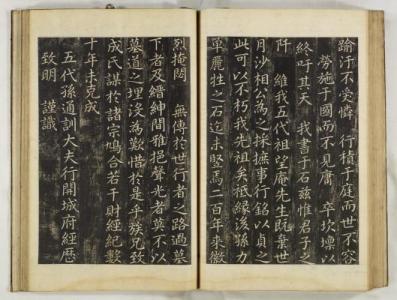 踰汙不受憐　行積于庭而世不容
勞施于國而不見庸　卒坎壈以
終吁其天　我書于石玆惟君子之
阡　維我五代祖望庵先生旣葉世
月沙相公爲之採撫事行銘以貞之
此可以不朽我先祖矣祗緣後孫力
單麗牲之石迄未竪焉二百年來徽
烈掩閼　無傳於世行者之路過墓
下者及縉紳間雅挹聲光者莫不以
墓道之埋沒爲歎惜於是乎族兄致
成氏謀於諸宗鳩合若干財經紀數
十年未克成
五代孫通訓大夫行開城府經歷
致明　謹識